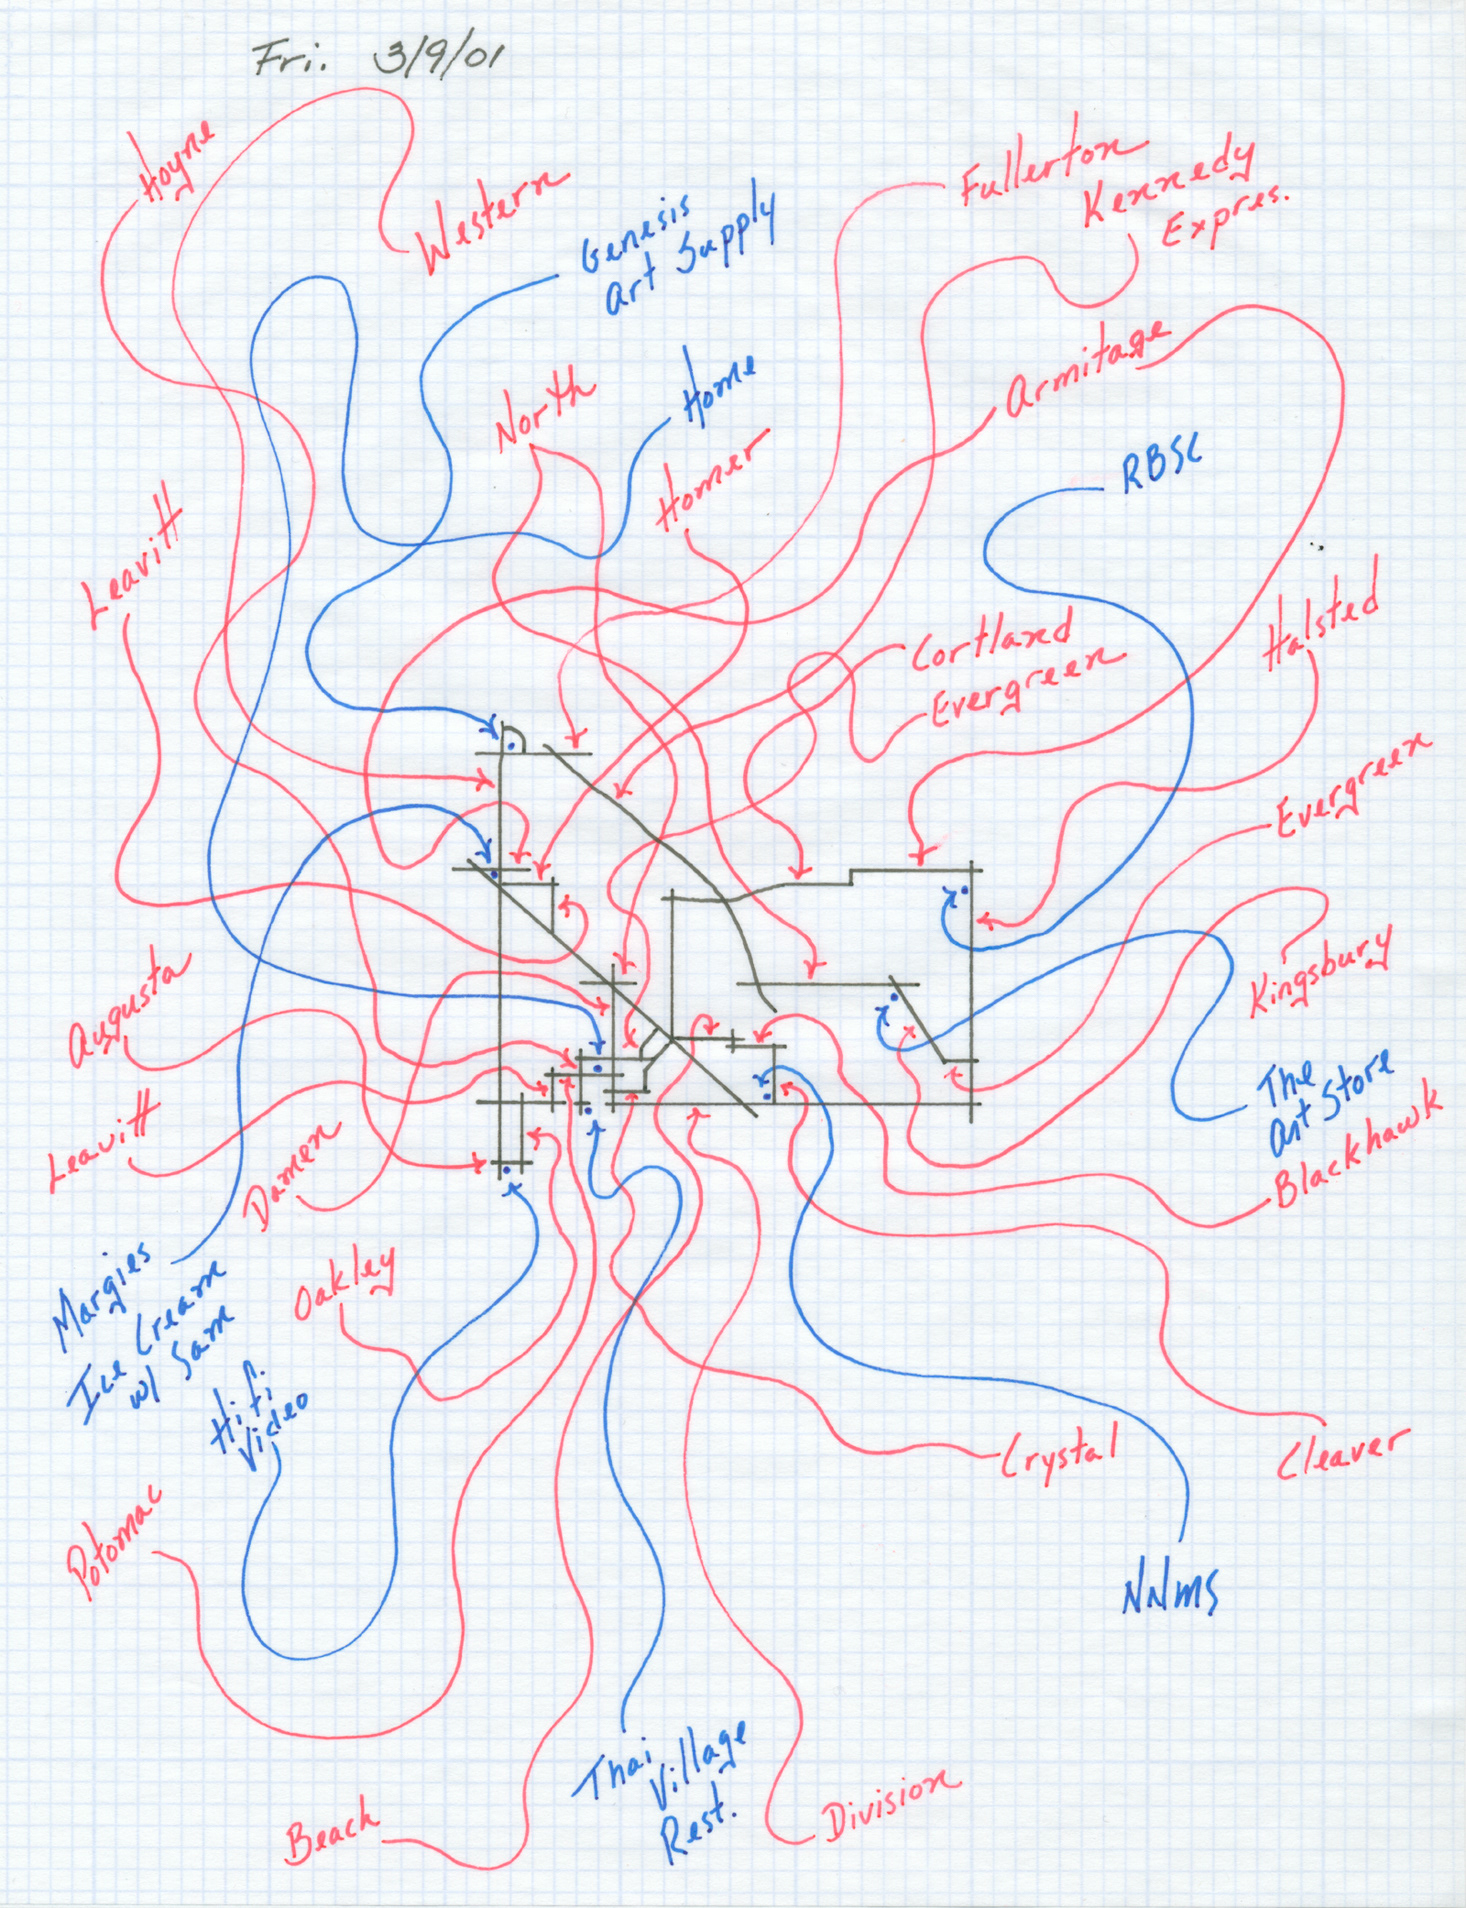 Fri. 3/9/01
Hoyne
Western
Genesis
Art Supply
Fullerton
Kennedy
Expres.
North
Home
Homer
Armitage
RBSC
Leavitt
Cortland
Evergreen
Halsted
Evergreen
Augusta
Kingsbury
Leavitt
Damen
The
Art Store
Blackhawk
Margies
Ice Cream
w/ Sam
Oakley
Hi Fi
Video
Crystal
Cleaver
Potomac
NNMS
Thai
Village
Rest.
Beach
Division